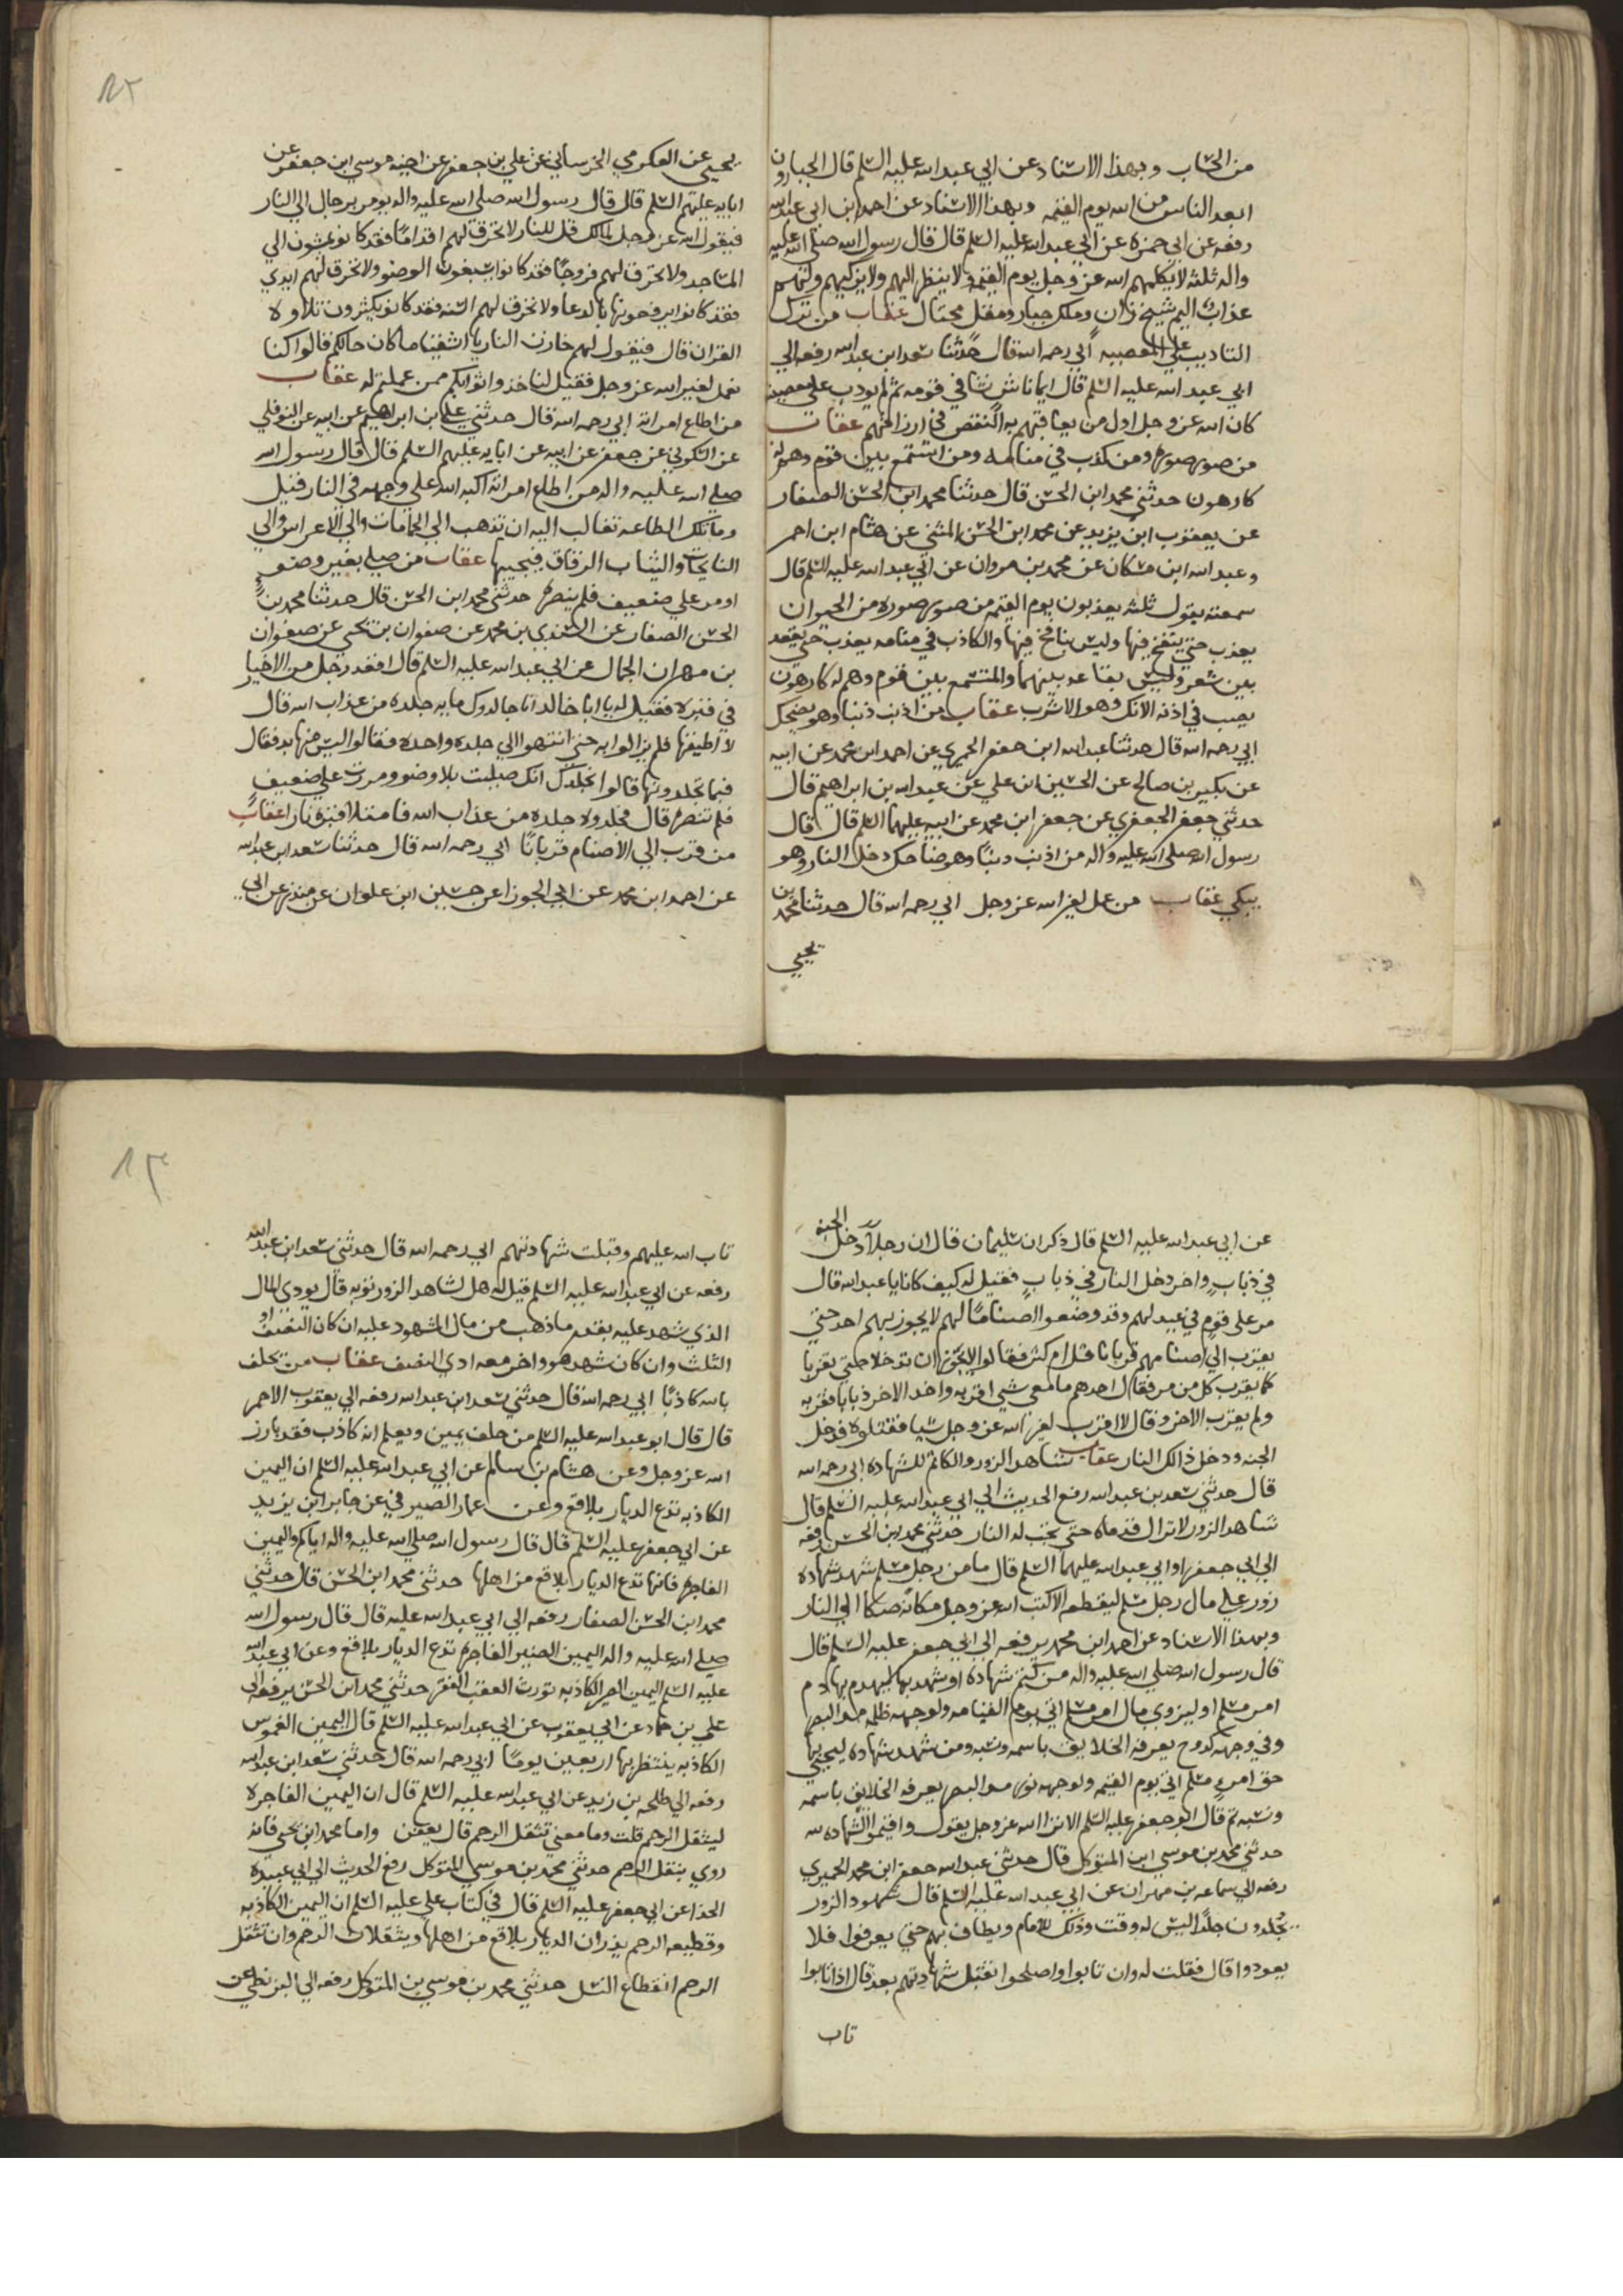 من الحساب وبهذا الاسناد عن ابي عبد الله عليه السلم قال الجبارون
ابعد الناس من الله يوم القيمه وبهذا الاسناد عن احمد ابن ابي عبد الله
رفعه عن ابي حمزه عن ابي عبد الله عليه السلم قال قال رسول الله صلى الله عليه
واله ثلثه لا يكلمهم الله عز وجل يوم القيمه ولا ينظر اليهم ولا يزكيهم ولهم
عذاب اليم شيخ زان وملك جبار ومقل محتال عقاب من ترك
التاديب على المعصيه ابي رحمه الله قال حدثنا سعد ابن عبد الله رفعه الي
ابي عبد الله عليه السلم قال ايما ناش نشا في قومه ثم لم يودب على معصيه
كان الله عز وجل اول من يعاقبهم به النقص في ارزاقهم عقاب
من صور صوره ومن كذب في منامه ومن استمع بين قوم وهم له
كارهون حدثني محمد ابن الحسن قال حدثنا محمد ابن الحسن الصفار
عن يعقوب ابن يزيد عن محمد ابن الحسن المثني عن هشام ابن احمر
وعبد الله ابن مسكان عن محمد بن مروان عن ابي عبد الله عليه السلم قال
سمعته يقول ثلثه يعذبون يوم القيمه من صور صوره من الحيوان
يعذب حتي ينفخ فيها وليس بنافخ فيها والكاذب في منامه يعذب حتي يعقد
بين شعرو وليس بعاقد بينهما والمستمع بين قوم وهم له كارهون
يصب في اذنه الانك وهو الاسرب عقاب من اذنب ذنبا وهو يضحك
ابي رحمه الله قال حدثنا عبد الله ابن جعفر الحميري عن احمد ابن محمد عن ابيه
عن بكير بن صالح عن الحسين ابن علي عن عبد الله بن ابراهيم قال
حدثني جعفر الجعفري عن جعفر ابن محمد عن ابيه عليهما السلم قال قال
رسول الله صلى الله عليه واله من اذنب ذنبًا وهو ضاحك دخل النار وهو
يبكي عقاب من عمل لغير الله عز وجل ابي رحمه الله قال حدثنا محمد بن
يحيي
١٢
يحيي عن العمكرمي الخرساني عن علي بن جعفر عن اخيه موسي ابن جعفر عن
ابايه عليهم السلم قال قال رسول الله صلى الله عليه واله يومر برجال الي النار
فيقول الله عز وجل لمالك قل للنار لا تحرق لهم اقدامًا فقد كانو يمشون الي
المساجد ولا تحرق لهم فروجًا فقد كانوا يسبغون الوضو ولا تحرق لهم ايدي
فقد كانوا يرفعونها بالدعا ولا تحرق لهم السنه فقد كانو يكثرون تلاوه
القران قال فيقول لهم خازن النار يا اشقيا ما كان حالكم قالوا كنا
نعمل لغير الله عز وجل فقيل لنا خذوا ثوابكم ممن عملتم له عقاب
من اطاع امراته ابي رحمه الله قال حدثني علي ابن ابراهيم عن ابيه عن النوفلي
عن السكوني عن جعفر عن ابيه عن ابايه عليهم السلم قال قال رسول الله
صلي الله عليه واله من اطاع امراته اكبه الله علي وجهه في النار قيل
وما تلك الطاعه تطالب اليه ان تذهب الي الحمامات والي الاعراس والي
النايحات والثياب الرقاق فيجيبها عقاب من صلي بغير وضو
او مر علي ضعيف فلم ينصره حدثني محمد ابن الحسن قال حدثنا محمد بن
الحسن الصفار عن السندي بن محمد عن صفوان بن يحيي عن صفوان
بن مهران الجمال عن ابي عبد الله عليه السلم قال اقعد رجل من الاخيار
في قبره فقيل له يا ابا خالد انا جالدوك مايه جلده من عذاب الله قال
لا اطيقها فلم يزالوا به حتي انتهوا الي جلده واحده فقالوا ليس منها بد فقال
فبما تجلدونها قالوا نجلدك انك صليت بلا وضو ومررت علي ضعيف
فلم تنصره قال فجلدوه جلده من عذاب الله فامتلا قبره نارا عقاب
من قرب الي الاصنام قربانًا ابي رحمه الله قال حدثنا سعد ابن عبد الله
عن احمد ابن محمد عن ابي الجوزا عن حسين ابن علوان عن منذر عن ابي
عن ابي عبد الله عليه السلم قال ذكر ان سليمان قال ان رجلًا دخل الجنه
في ذباب واخر دخل النار في ذباب فقيل له كيف كانا يا عبد الله قال
مر علي قوم في عيد لهم وقد وضعوا اصنامًا لهم لا يجوز بهم احد حتي
يقرب الي اصنامهم قربانا قل ام كثر فقالوا لا يجوز ان تدخلا حتي تقربا
كما يقرب كل من مر فقال احدهم ما معي شي اقربه واخذ الاخر ذبابا فقربه
ولم يقرب الاخر وقال لا اقرب لغير الله عز وجل شيا فقتلوه فدخل
الجنه ودخل ذالك النار عقاب شاهد الزور والكاتم للشهاده ابي رحمه الله
قال حدثني سعد بن عبد الله رفع الحديث الي ابي عبد الله عليه السلم قال
شاهد الزور لا تزال قدماه حتي تجب له النار حدثني محمد بن الحسن رفعه
الي ابي جعفر او ابي عبد الله عليهما السلم قال ما من رجل مسلم شهد شهاده
زور علي مال رجل مسلم ليقطعه الا كتب الله عز وجل مكانه صكا الي النار
وبهذا الاسناد عن احمد ابن محمد يرفعه الي ابي جعفر عليه السلم قال
قال رسول الله صلي الله عليه واله من كتم شهاده او شهد بها ليهدم بها دم
امر مسلم او ليزوي مال امر مسلم اتي يوم القيامه ولوجهه ظلمه مد البصر
وفي وجهه كدوح يعرفه الخلايق باسمه ونسبه ومن شهد شهاده ليحيي بها
حق امرء مسلم اتي يوم القيمه ولوجهه نور مد البصر يعرفه الخلايق باسمه
ونسبه ثم قال ابو جعفر عليه السلم الا تري الله عز وجل يقول واقيموا الشهاده لله
حدثني محمد بن موسي ابن المتوكل قال حدثني عبد الله جعفر ابن محمد الحميري
رفعه الي سماعه بن مهران عن ابي عبد الله عليه السلم قال شهود الزور
يجلدون جلدًا ليس له وقت وذلك للامام ويطاف بهم حتي يعرفوا فلا
يعودوا قال فقلت له وان تابوا واصلحوا تقبل شهادتهم بعد قال اذا تابوا
تاب
١٣
تاب الله عليهم وقبلت شهادتهم ابي رحمه الله قال حدثني سعد ابن عبد الله
رفعه عن ابي عبد الله عليه السلم قيل له هل لشاهد الزور توبه قال يودي المال
الذي شهد عليه بقدر ما ذهب من مال المشهود عليه ان كان النصف او
الثلث وان كان شهد هو واخر معه ادي النصف عقاب من يحلف
بالله كاذبًا ابي رحمه الله قال حدثني سعد ابن عبد الله رفعه الي يعقوب الاحمر
قال قال ابو عبد الله عليه السلم من حلف يمين ويعلم انه كاذب فقد بارز
الله عز وجل وعن هشام بن سالم عن ابي عبد الله عليه السلم ان اليمين
الكاذبه تدع الديار بلاقع وعن عمار الصيرفي عن جابر ابن يزيد
عن ابي جعفر عليه السلم قال قال رسول الله صلي الله عليه واله اياكم واليمين
الفاجره فانها تدع الديار بلاقع من اهلها حدثني محمد ابن الحسن قال حدثني
محمد ابن الحسن الصفار رفعه الي ابي عبد الله عليه قال قال رسول الله
صلي الله عليه واله اليمين الصبر الفاجره تدع الديار بلاقع وعن ابي عبد الله
عليه السلم اليمين الصبر الكاذبه تورث العقب الفقر حدثني محمد ابن الحسن يرفعه الي
علي بن حماد عن ابي يعقوب عن ابي عبد الله عليه السلم قال اليمين الغموس
الكاذبه ينتظر بها اربعين يومًا ابي رحمه الله قال حدثني سعد ابن عبد الله
رفعه الي طلحه بن زيد عن ابي عبد الله عليه السلم قال ان اليمين الفاجره
ليثقل الرحم قلت وما معني تثقل الرحم قال يعقن واما محمد ابن يحيي فانه
روي ينقل الرحم حدثني محمد بن موسي المتوكل رفع الحديث الي ابي عبيده
الحذا عن ابي جعفر عليه السلم قال في كتاب علي عليه السلم ان اليمين الكاذبه
وقطيعه الرحم يذران الديار بلاقع من اهلها ويثقلان الرحم وان تثقل
الرحم انقطاع النسل حدثني محمد بن موسي بن المتوكل رفعه الي البزنطي عن